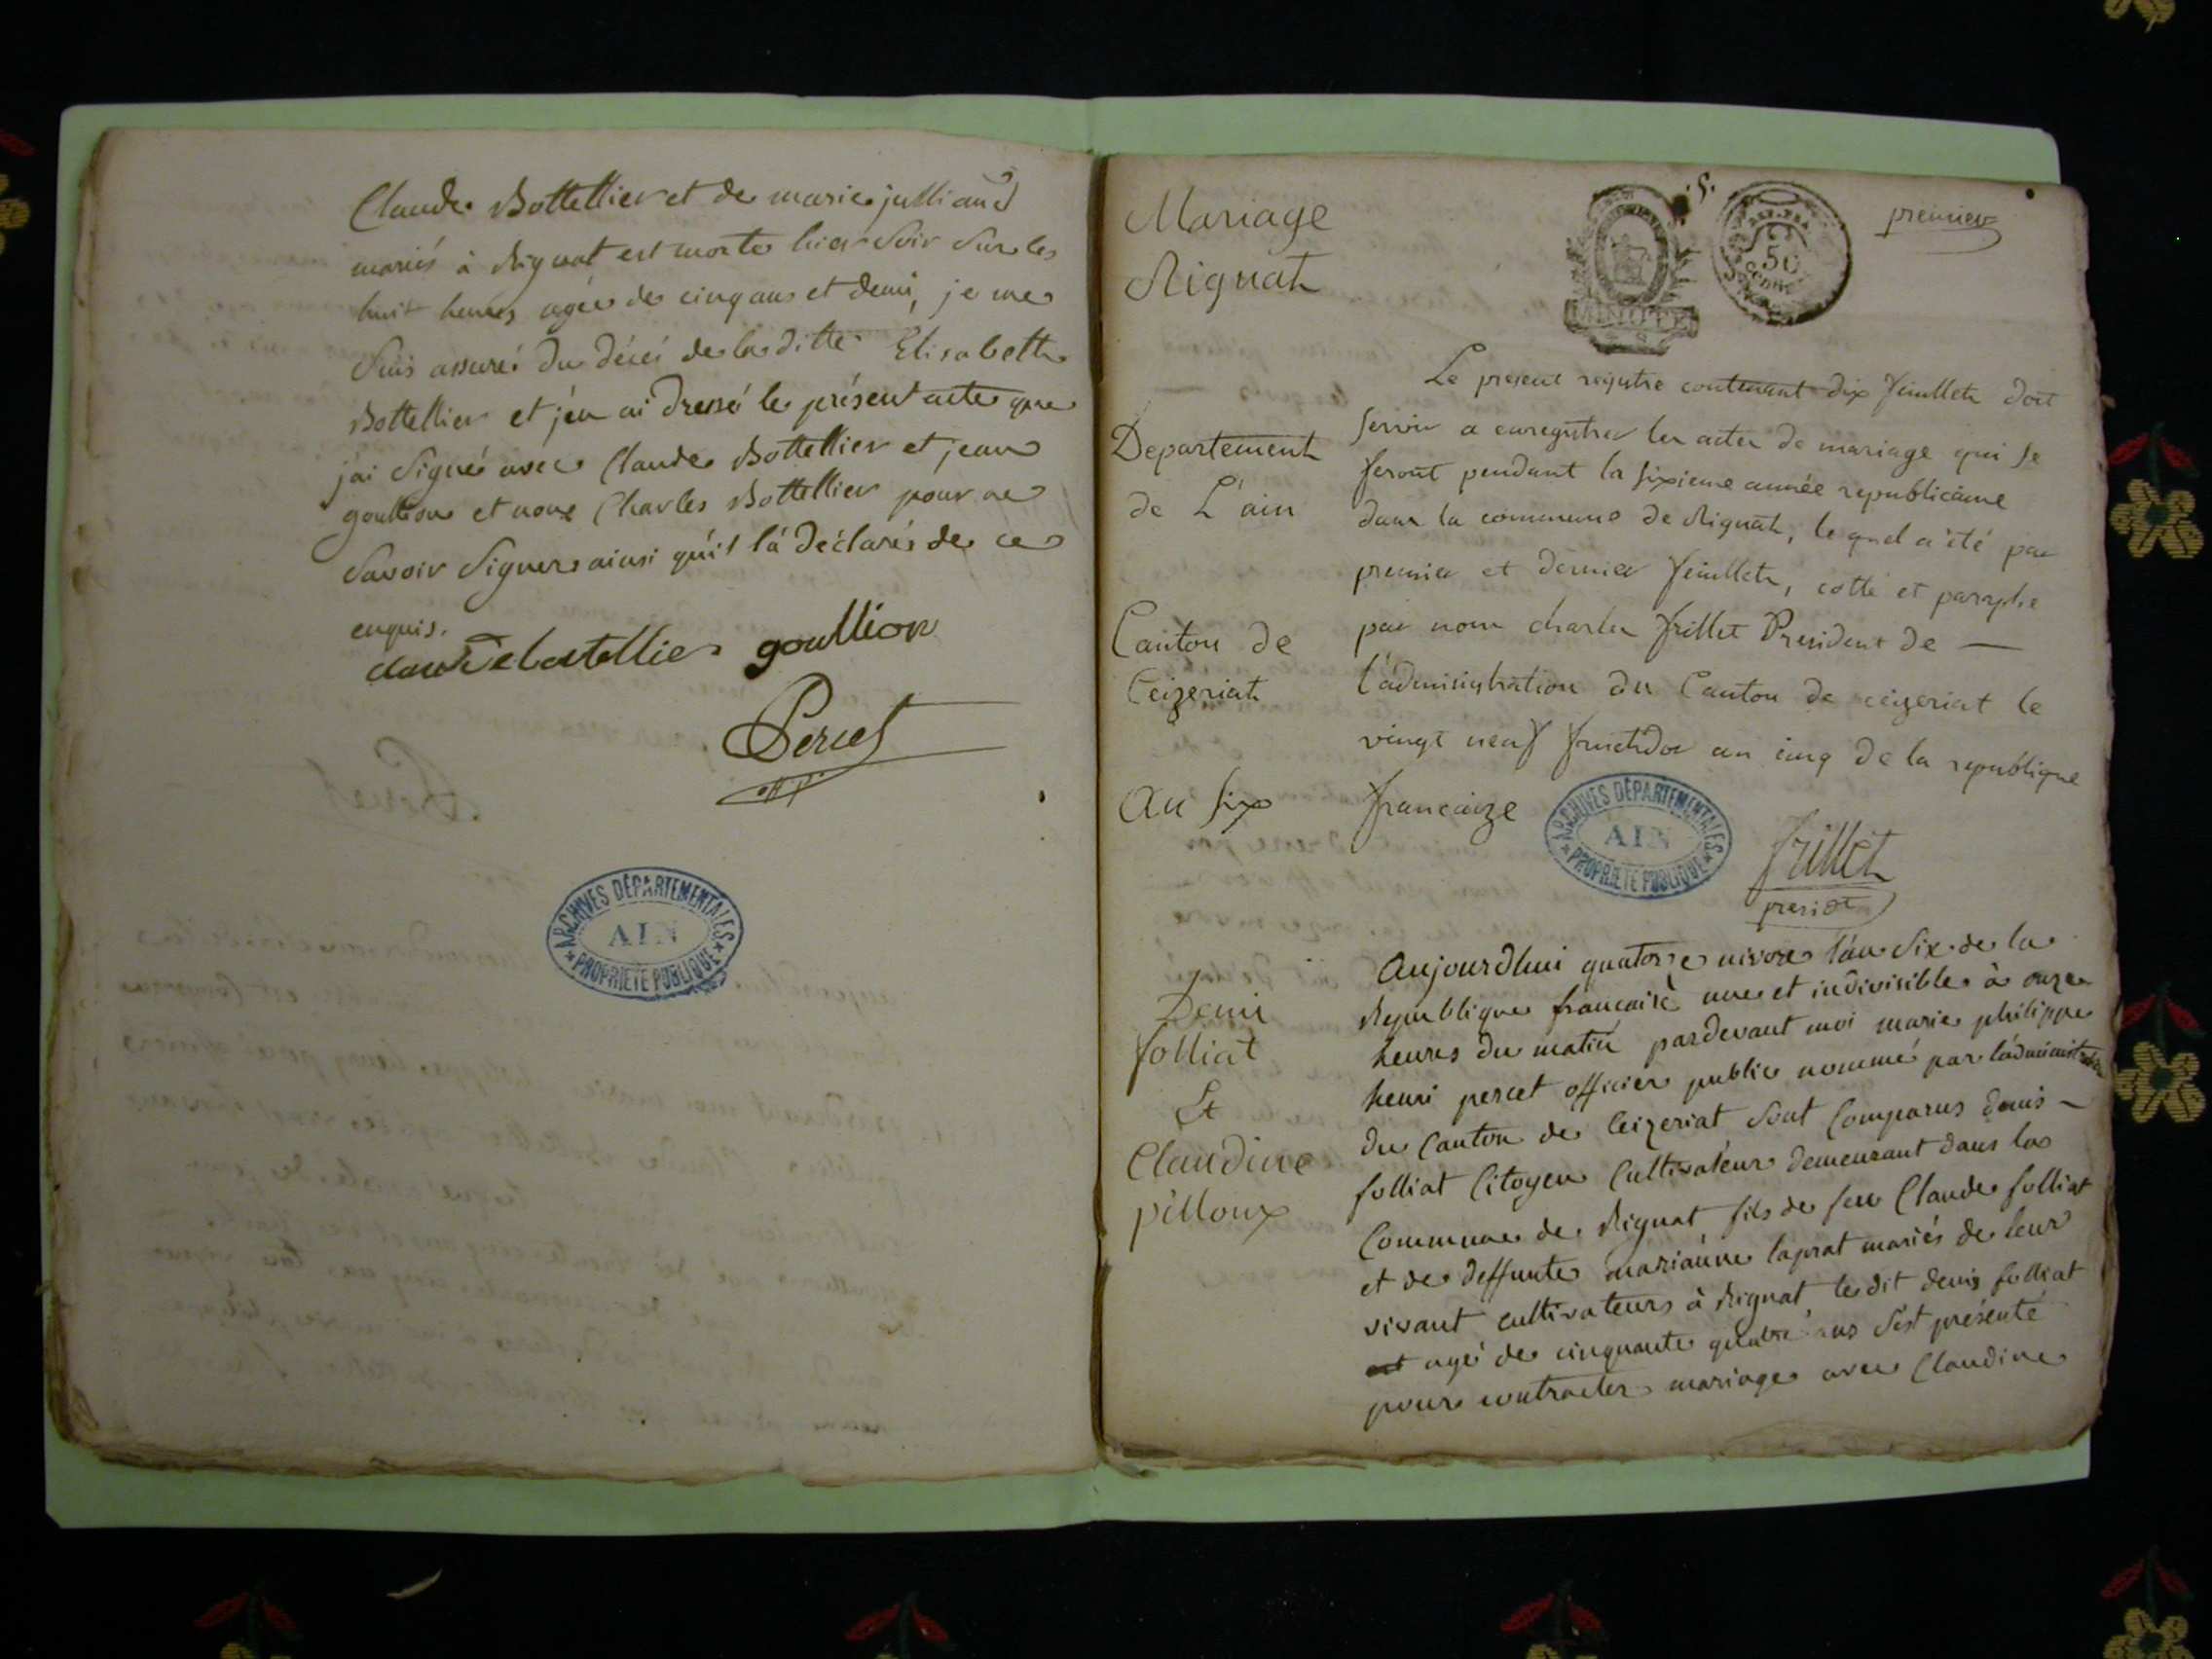 Claude Bottellier et de marie julliand
mariés à Rignat est morte hier soir sur les
huit heures agée de cinq ans et demi, je me
suis assuré du décéi de la ditte Elisabeth
Bottellier et j'en ai dressé le présent acte que
j'ai signé avec Claude Bottellier et jean
goullion et non Charles Bottellier pour ne
savoir signer ainsi qu'il l'a déclaré de ce
enquis.
goullion
Percet
ARCHIVES DÉPARTEMENTALES
AIN
PROPRIÉTÉ PUBLIQUE
Mariage
Rignat
Departement
de L'ain
Canton de
Ceizeriat
An six
.5.
REP. FRA.
50
CENT.
MINUTE
premier
Le present registre contenant dix feuillets doit
servir a enregistrer les actes de mariage qui se
feront pendant la sixieme année republicaine
dans la commune de Rignat, le quel a été par
premier et dernier feuillets, cotté et paraphe
par nous charles frillet President de —
l'administration du Canton de ceizeriat le
vingt neuf fructidor an cinq de la republique
francaize
ARCHIVES DÉPARTEMENTALES
AIN
PROPRIÉTÉ PUBLIQUE
frillet
presidt
Denis
folliat
Et
Claudine
pilloux
Aujourdhui quatorze nivose l'an six de la
Republique francaise une et indivisible à onze
heures du matin pardevant moi marie philippe
henri percet officier public nommé par l'administration
du Canton de Ceizeriat sont Comparus denis
folliat Citoyen Cultivateur demeurant dans la
Commune de Rignat fils de feu Claude folliat
et de deffunte marianne laprat mariés de leur
vivant cultivateurs à Rignat, le dit denis folliat
agé de cinquante quatre ans s'est présenté
pour contracter mariage avec Claudine